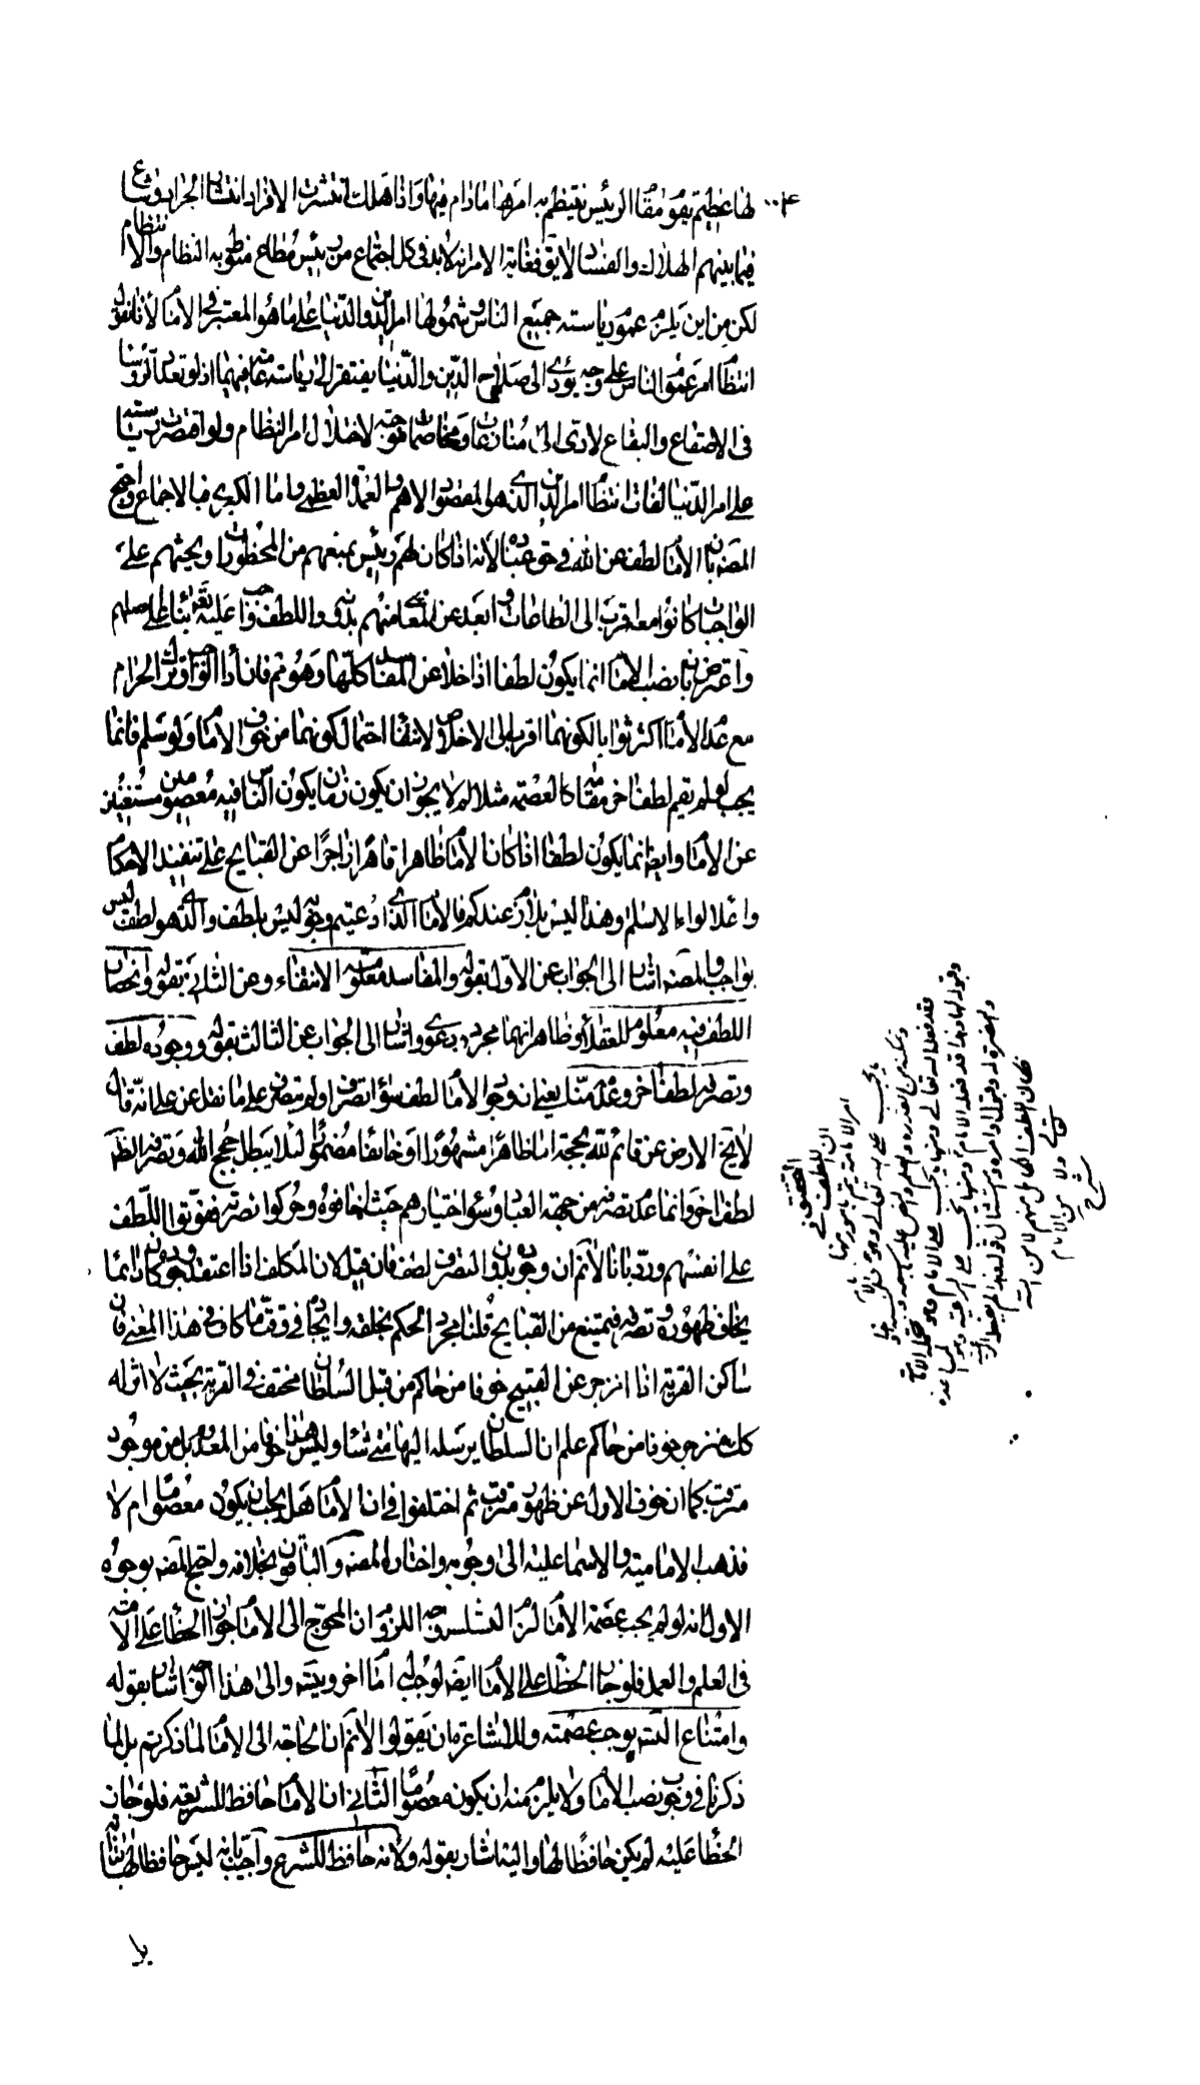 ٤٠٠
لها عظيم يقوم مقام الرئيس ينتظم به امرها مادام فيها واذا هلك انتشرت الافراد انتشار الجراد وشاع
فيما بينهم الهلاك والفساد لا يق فغاية الامر انه لابد فى كل اجتماع من رئيس مطاع منوط به النظام والانتظام
لكن من اين يلزم عموم رياسته جميع الناس وشمولها امر الدين والدنيا على ما هو المعتبر فى الامام لانا نقول
انتظام امر عموم الناس على وجه يؤدى الى صلاح الدين والدنيا يفتقر الى رياسة عامة فيهما اذ لو تعدد الرؤسا
فى الاصقاع والبقاع لادى الى منازعات ومخاصمات موجبة لاختلال امر النظام ولو اقتصرت رياسته
على امر الدنيا لفات انتظام امر الدين الذى هو المقصود الاهم والعمدة العظمى واما الكبرى فبالاجماع واحتج
المصنف بان الامام لطف من الله فى حق عباده لانه اذا كان لهم رئيس يمنعهم من المحظورات ويحثهم على
الواجبات كانوا معه اقرب الى الطاعات وابعد عن المعاصى منهم بدونه واللطف واجب عليه تعالى بناء على اصلهم
واعترض بان نصب الامام انما يكون لطفا اذا خلا عن المفاسد كلها وهو مم فان اداء الواجب وترك الحرام
مع عدم الامام اكثر ثوابا لكونهما اقرب الى الاخلاص لانتفاء احتمال كونهما من خوف الامام ولو سلم فانما
يجب لو لم يقم لطف اخر مقامه كالعصمة مثلا لم لا يجوز ان يكون زمان يكون الناس فيه معصومين مستغنين
عن الامام وايضا انما يكون لطفا اذا كان الامام ظاهرا قاهرا زاجرا عن القبايح على تنفيذ الاحكام
واعلاء لواء الاسلام وهذا ليس بلازم عندكم فالامام الذى ادعيتم وجوبه ليس بلطف والذى هو لطف ليس
بواجب والمصنف اشار الى الجواب عن الاول بقوله والمفاسد معلومة الانتفاء وعن الثانى بقوله وانحصار
اللطف فيه معلوم للعقلاء وظاهر انهما مجرد دعوى واشار الى الجواب عن الثالث بقوله ووجوده لطف
وتصرفه لطف اخر وعدمه منا يعنى ان وجود الامام لطف سواء تصرف او لم يتصرف على ما نقل عن على انه قال
لا يخ الارض عن قائم لله بحجة اما ظاهرا مشهورا او خائفا مضمورا لئلا يبطل حجج الله وتصرفه الظاهر
لطف اخر وانما عدم تصرفه من جهة العباد وسوء اختيارهم حيث اخافوه وتركوا نصرته ففوتوا اللطف
على انفسهم ورد بانا لا نم ان وجوده بدون التصرف لطف فان قيل لان المكلف اذا اعتقد وجوده كان دائما
يخاف ظهوره وتصرفه فيمتنع من القبايح قلنا مجرد الحكم بخلقه وايجاده فى وقت ما كاف فى هذا المعنى فان
ساكن القرية اذا انزجر عن القبيح خوفا من حاكم من قبل السلطان مختف فى القرية بحيث لا اثر له
كك ينزجر خوفا من حاكم علم ان السلطان يرسله اليها متى شاء وليس هذا خوفا من المعدوم بل من موجود
مترقب كما ان خوف الاول عن ظهور مترقب ثم اختلفوا فى ان الامام هل يجب ان يكون معصوما ام لا
فذهب الامامية والاسماعيلية الى وجوبه واختاره المصنف والباقون بخلافه واحتج المصنف بوجوه
الاول انه لو لم يجب عصمة الامام لزم التسلسل وجه اللزوم ان المحوج الى الامام جواز الخطاء على الامة
فى العلم والعمل فلو جاز الخطاء على الامام ايضا لوجب له امام اخر ويتسلسل والى هذا الوجه اشار بقوله
وامتناع التسلسل يوجب عصمته وللاشاعرة ان يقولوا لا نم ان الحاجة الى الامام لما ذكرتم بل لما
ذكرنا فى وجوب نصب الامام ولا يلزم منه ان يكون معصوما الثانى ان الامام حافظ للشريعة فلو جاز
الخطاء عليه لم يكن حافظا لها واليه اشار بقوله ولانه حافظ للشرع واجيب بانه ليس حافظا لها بذاته
بل
التحقيق فى
ان اللطف فى
امر الامامة يتم بامور منها